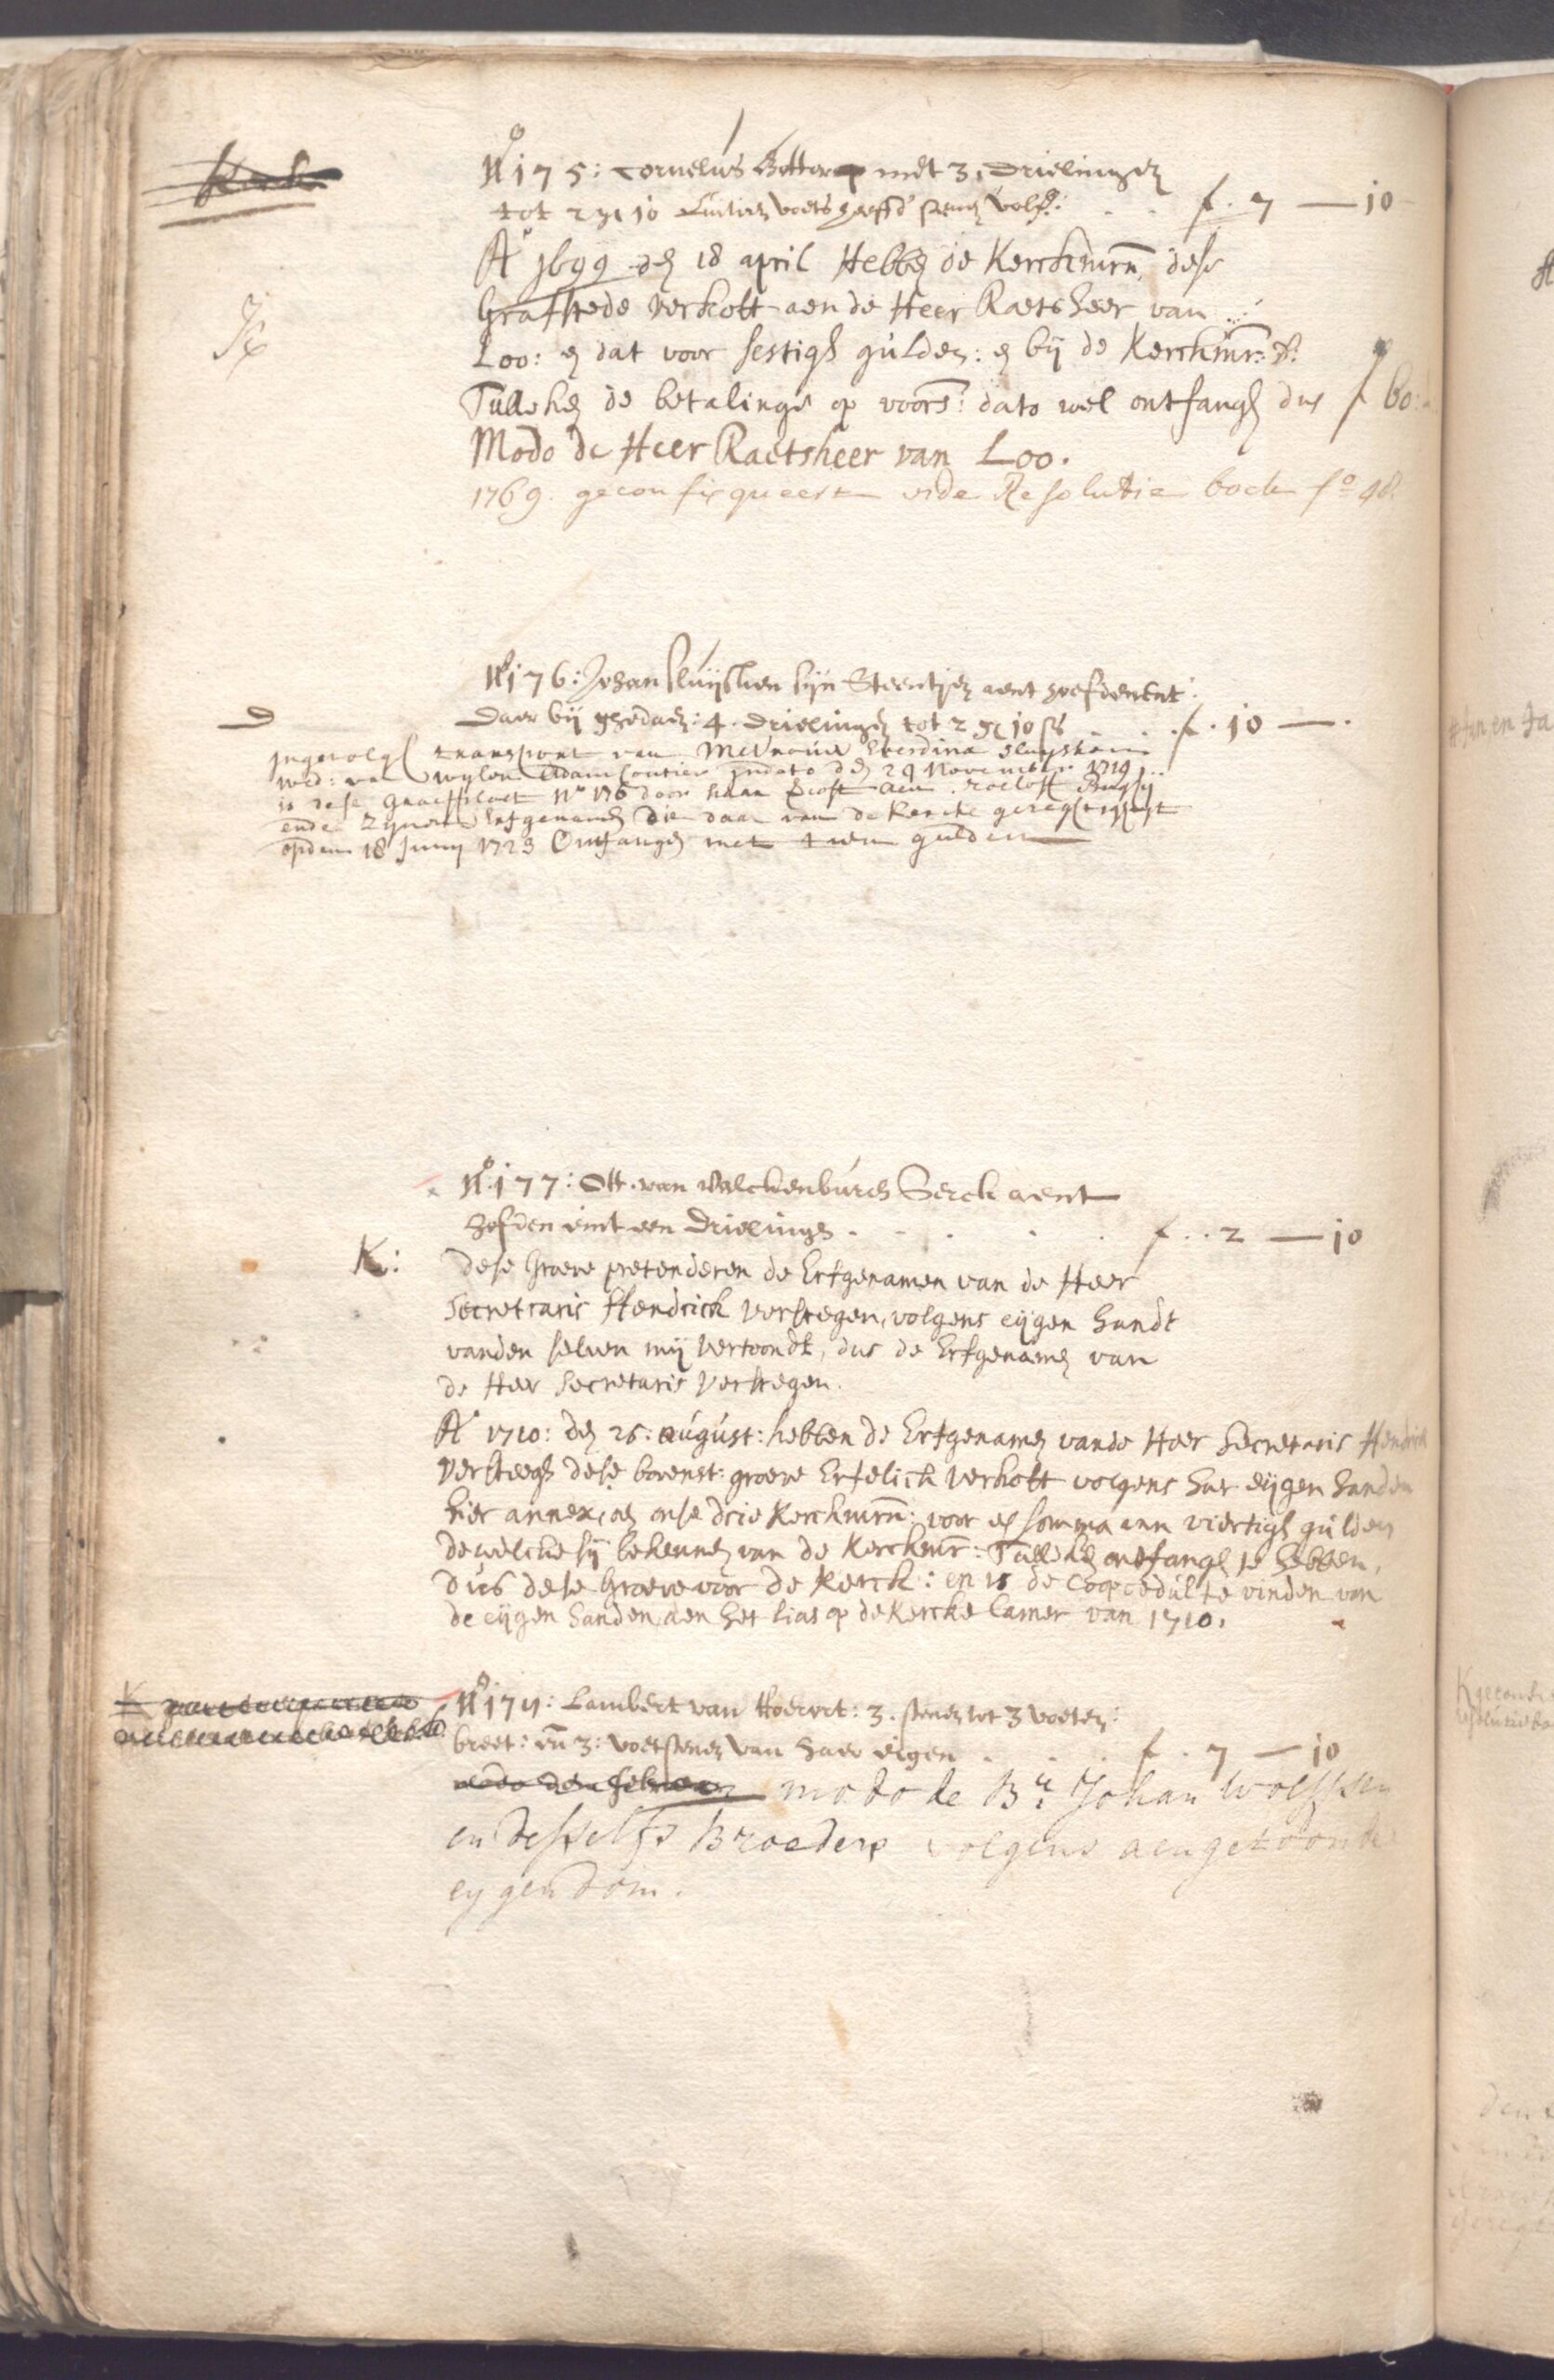 Kerck
No 175: Cornelus Botter met 3. Drielingen
tot 2 gl 10 f. 7 — 10
Ao 1699 den 18 april Hebben de Kerckmrn dese
Grafstede verkoft aen de Heer Raetsheer van
Loo: en dat voor sestigh gulden: en bij de Kerckmr:
Tulleken de betalinge op voors: dato wel ontfangen dus f 60:
Modo de Heer Raetsheer van Loo.
1769. geconfisqueert vide Resolutie boek fo 48
No 176: Johan Sluijsken sijn Steentjen aent hoefdenent
Daer bij gedaen: 4. Drielingen tot 2 gl 10 st f. 10 —
D
Ingevolgh transport van Mevrouw Everdina Sluysken
wed: van wylen Adam Coutier in dato den 29 November 1719
is dese Graeffplaet No 176 door haar vercoft aen Roeloff
ende Zynen Erfgenamen Die daar van de Kercke gereghtigheyt
op den 18 Juny 1723 Ontfangen met tien gulden
No 177: Ott van Valckenburch Serck aent
hofden eint een Drielingh f. 2 — 10
K: Dese Groeve pretenderen de Erfgenamen van de Heer
Secretaris Hendrick Verstegen, volgens eijgen handt
vanden selven mij vertoondt, dus de Erfgenamen van
de Heer Secretaris Verstegen.
Ao 1710: den 26: august: hebben de Erfgenamen vande Heer Secretaris Hendrick
Versteegh dese bovenst: groeve Erfelick verkoft volgens haer eijgen handen
hier annex, aen onse drie Kerckmrn: voor en somma van viertigh gulden
dewelcke sij bekennen van de Kerckmr: Tulleken ontfangen te hebben,
dus dese Groeve voor de Kerck: en is de Coopcedul te vinden van
de eijgen handen, aen het lias op de Kercke Camer van 1710.
No 178: Lambert van Hoevert: 3. stenen tot 3 voeten:
breet: en 3: voetstenen van haer eigen f. 7 — 10
modo de Br: Johan Wolffsen
en desselfs Broeders volgens aengetoonde
eygendom.